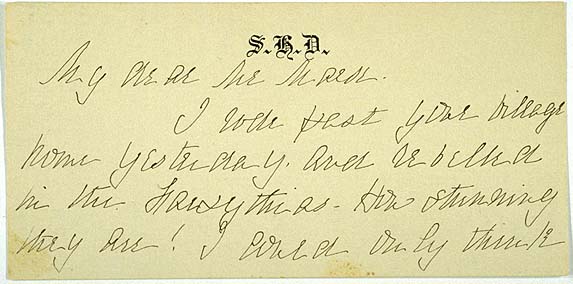 S.H.D.
My dear Mr
I rode past your village
home yesterday. and revelled
in the Forsythias - How stunning
they are! I could only think